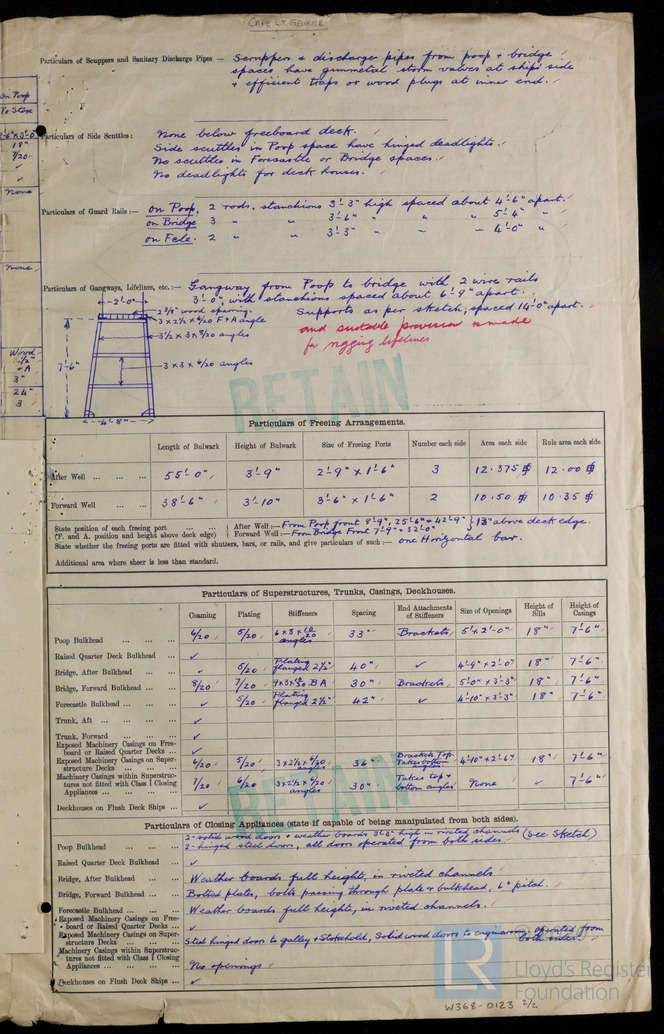 CAPE ST. GEORGE
Particulars of Scuppers and Sanitary Discharge Pipes — Scuppers & discharge pipes from poop & bridge
spaces have gunmetal storm valves at ships side
& efficient traps or wood plugs at inner end.
on Poop
18"
7/20
None
Particulars of Side Scuttles:— None below freeboard deck.
Side scuttles in Poop space have hinged deadlights.
No scuttles in Forecastle or Bridge spaces.
No deadlights for deck houses.
Particulars of Guard Rails:— on Poop, 2 rods, stanchions 3'-3" high spaced about 4'-6" apart.
on Bridge 3 " " 3'-6" " " " 5'-4" "
on Fcle. 2 " " 3'-3" " " 4'-0" "
None
Particulars of Gangways, Lifelines, etc.:— Gangway from Poop to bridge with 2 wire rails
3'-0", with stanchions spaced about 6'-9" apart.
Supports as per sketch, spaced 14'-0" apart.
and suitable provision is made
for rigging lifelines
2'-0"
2 3/8" wood sparring
3 x 2 1/2 x 6/20 F & A angle
3 1/2 x 3 x 8/20 angles
3 x 3 x 6/20 angles
7'-6"
4'-8"
Wood
3"
24"
3
RETAIN
Particulars of Freeing Arrangements.
Length of Bulwark Height of Bulwark Size of Freeing Ports Number each side Area each side Rule area each side
After Well 55'-0" 3'-9" 2'-9" x 1'-6" 3 12.375 12.00
Forward Well 38'-6" 3'-10" 3'-6" x 1'-6" 2 10.50 10.35
State position of each freeing port After Well:— From Poop front 8'-9", 25'-6" & 42'-9" } 13" above deck edge.
(F. and A. position and height above deck edge) Forward Well:— From Bridge Front 7'-9" & 32'-0"
State whether the freeing ports are fitted with shutters, bars, or rails, and give particulars of such:— one Horizontal bar.
Additional area where sheer is less than standard.
Particulars of Superstructures, Trunks, Casings, Deckhouses.
Coaming Plating Stiffeners Spacing End Attachments of Stiffeners Size of Openings Height of Sills Height of Casings
Poop Bulkhead 6/20 5/20 6 x 3 x 10/20 angles 33" Brackets 5' x 2'-0" 18" 7'-6"
Raised Quarter Deck Bulkhead ✓
Bridge, After Bulkhead ✓ 5/20 Plating flanged 2 1/2" 40" ✓ 4'-9" x 2'-0" 18" 7'-6"
Bridge, Forward Bulkhead 8/20 7/20 9 x 3 x BA 30" Brackets 5'-0" x 3'-3" 18" 7'-6"
Forecastle Bulkhead ✓ 5/20 Plating flanged 2 1/2" 42" ✓ 4'-10" x 3'-3" 18" 7'-6"
Trunk, Aft ✓
Trunk, Forward ✓
Exposed Machinery Casings on Freeboard or Raised Quarter Decks ✓
Exposed Machinery Casings on Superstructure Decks 6/20 5/20 3 x 2 1/2 x 6/20 angles 36" Brackets Top. Takes bottom 4'-10" x 2'-6" 18" 7'-6"
Machinery Casings within Superstructures not fitted with Class I Closing Appliances 7/20 6/20 3 x 2 1/2 x 6/20 angles 30" Takes top & bottom angles None ✓ 7'-6"
Deckhouses on Flush Deck Ships ✓
RETAIN
Particulars of Closing Appliances (state if capable of being manipulated from both sides).
Poop Bulkhead 2-solid wood doors & weather boards high in riveted channels (see sketch)
2-hinged steel doors, all doors operated from both sides
Raised Quarter Deck Bulkhead ✓
Bridge, After Bulkhead Weather boards full height, in riveted channels
Bridge, Forward Bulkhead Bolted plates, bolts passing through plate & bulkhead, 6" pitch.
Forecastle Bulkhead Weather boards full height, in riveted channels.
Exposed Machinery Casings on Freeboard or Raised Quarter Decks ✓
Exposed Machinery Casings on Superstructure Decks Steel hinged doors to galley & Stokehold, Solid wood doors to engineroom operated from both sides
Machinery Casings within Superstructures not fitted with Class I Closing Appliances No openings
Deckhouses on Flush Deck Ships ✓
LR
Lloyd's Register
Foundation
W368-0123 2/2